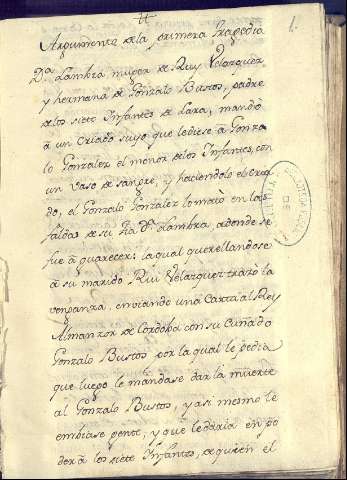 1.
Argumento de la primera tragedia
Dª Lambra muger de Ruy Velazquez,
y hermana de Gonzalo Bustos, padre
de los siete Infantes de Lara, mandò
à un criado suyo que lediese à Gonza
lo Gonzalez el menor de los Infantes, con
un vaso de sangre, y haciendolo el cria
do, el Gonzalo Gonzalez lo matò en las
faldas de su tia Dª Lambra, adonde se
fue à guarecer: la qual querellandose
à su marido Rui Velazquez trazò la
venganza, enviando una Carta al Rey
Almanzor de Cordoba con su Cuñado
Gonzalo Bustos, por la qual le pedia
que luego le mandase dar la muerte
al Gonzalo Bustos, y asi mesmo le
embiase gente, y que le daria en po
der à los siete Infantes, de quien el